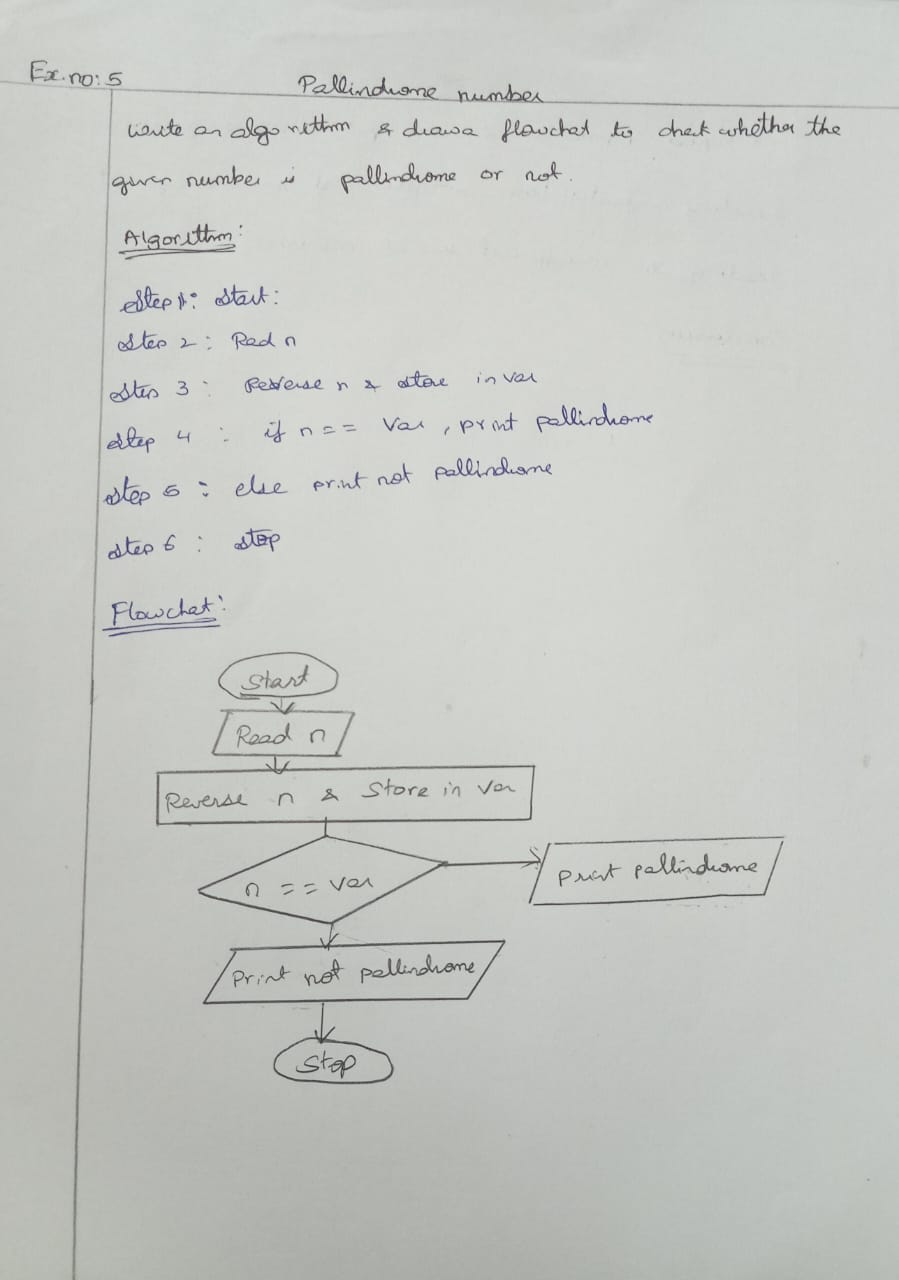 Ex.no: 5
Pallindrome number
Write an algorithm & drawa flowchat to check whether the
given number is pallindrome or not.
Algorithm:
Step 1: Start:
Step 2: Read n
Step 3: Reverse n & store in var
Step 4: if n == Var, print pallindrome
Step 5: else print not pallindrome
Step 6: stop
Flowchat:
Start
Read n
Reverse n & Store in var
n == var
print pallindrome
Print not pallindrome
Stop